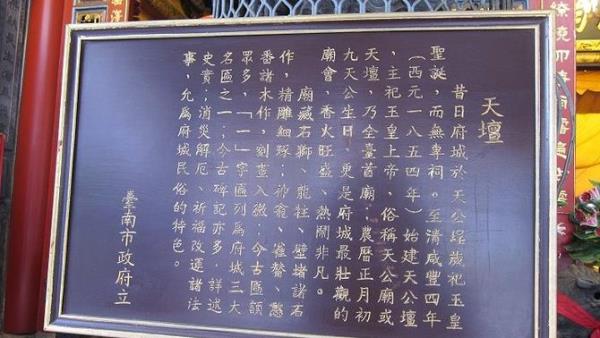 天壇
昔日府城於天公埕歲祀玉皇
聖誕，而無專祠。至清咸豐四年
（西元一八五四年）始建天公壇
，主祀玉皇上帝、俗稱天公廟或
天壇，乃全臺首廟；農曆正月初
九天公生日，更是府城最壯觀的
廟會，香火旺盛、熱鬧非凡。
廟藏石獅、龍柱、壁堵諸石
作，精雕細琢；神龕、雀替、憨
番諸木作，刻畫入微；今古匾額
眾多，「一」字匾列為府城三大
名匾之一；今古碑記亦多，詳述
史實；消災解厄、祈福改運諸法
事，允為府城民俗的特色。
臺南市政府立